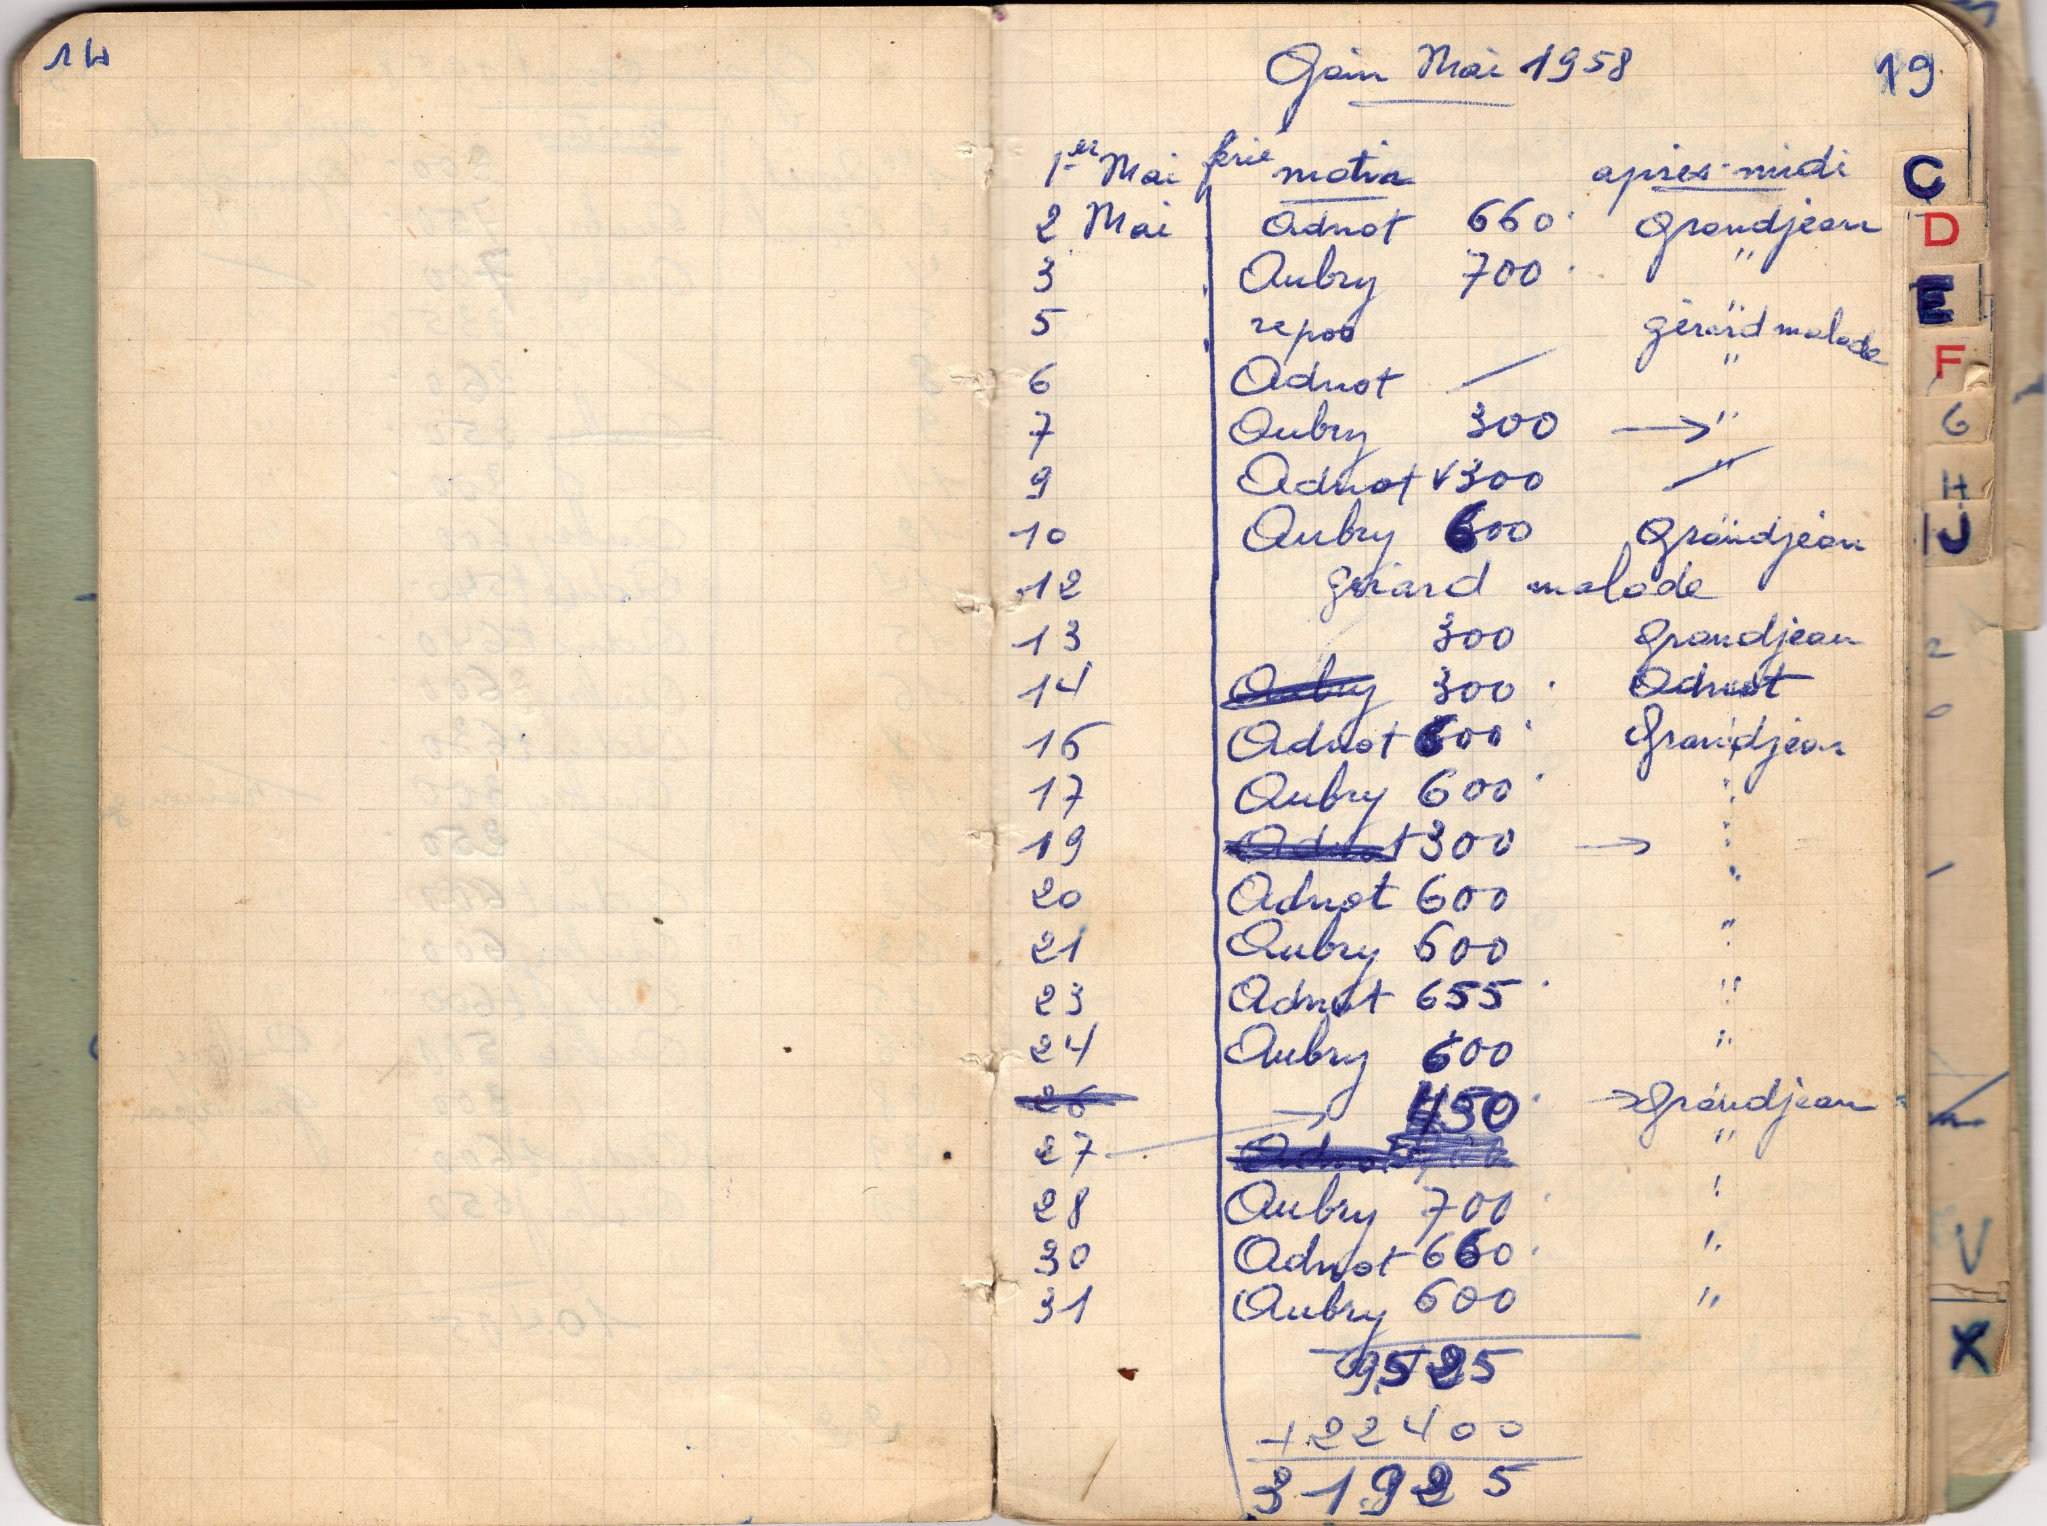 14
Gain Mai 1958
19
1er Mai férié matin après-midi
2 Mai Adnot 660 Grandjean
3 Aubry 700 "
5 repos gérard malade
6 Adnot — "
7 Aubry 300 → "
9 Adnot 300 "
10 Aubry 600 Grandjean
12 gérard malade
13 300 Grandjean
14 Aubry 300 Adnot
16 Adnot 600 Grandjean
17 Aubry 600 "
19 Adnot 300 → "
20 Adnot 600 "
21 Aubry 600 "
23 Adnot 655 "
24 Aubry 600 "
26 450 → Grandjean
27 → Adnot "
28 Aubry 700 "
30 Adnot 660 "
31 Aubry 600 "
9525
+22400
31925
C
D
E
F
G
H
IJ
V
X